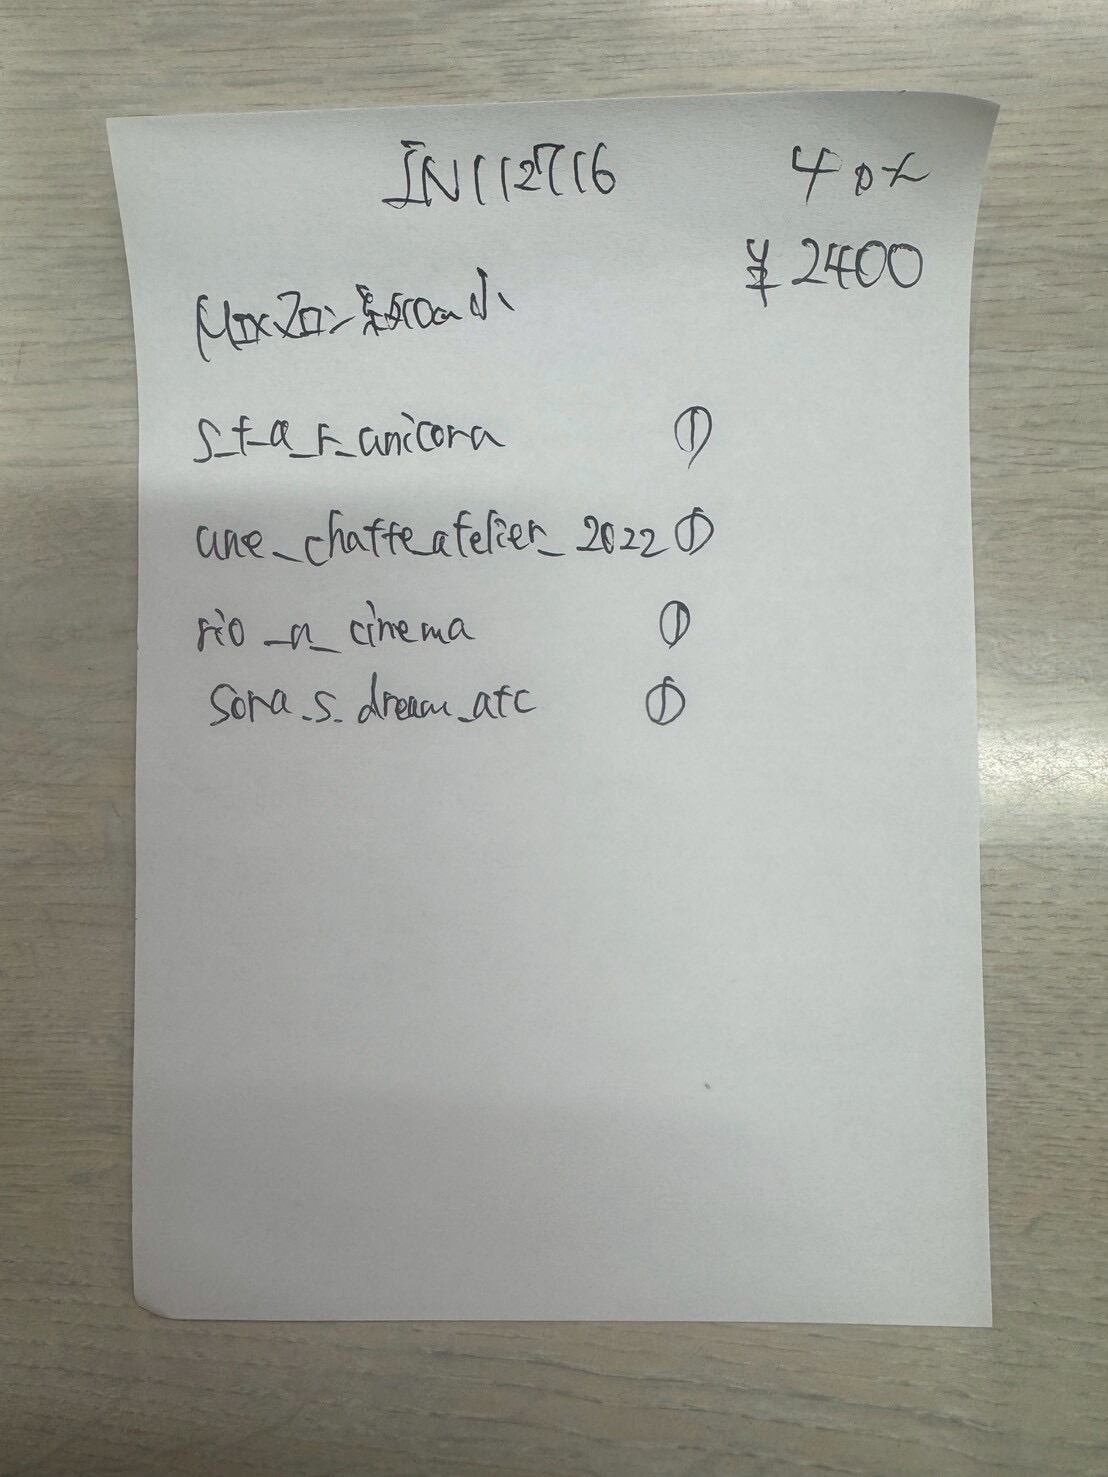 IN112716 4点
¥2400
s_t_a_r_anicora ①
une_chatte_atelier_2022 ①
rio_n_cinema ①
sora_s_dream_atc ①